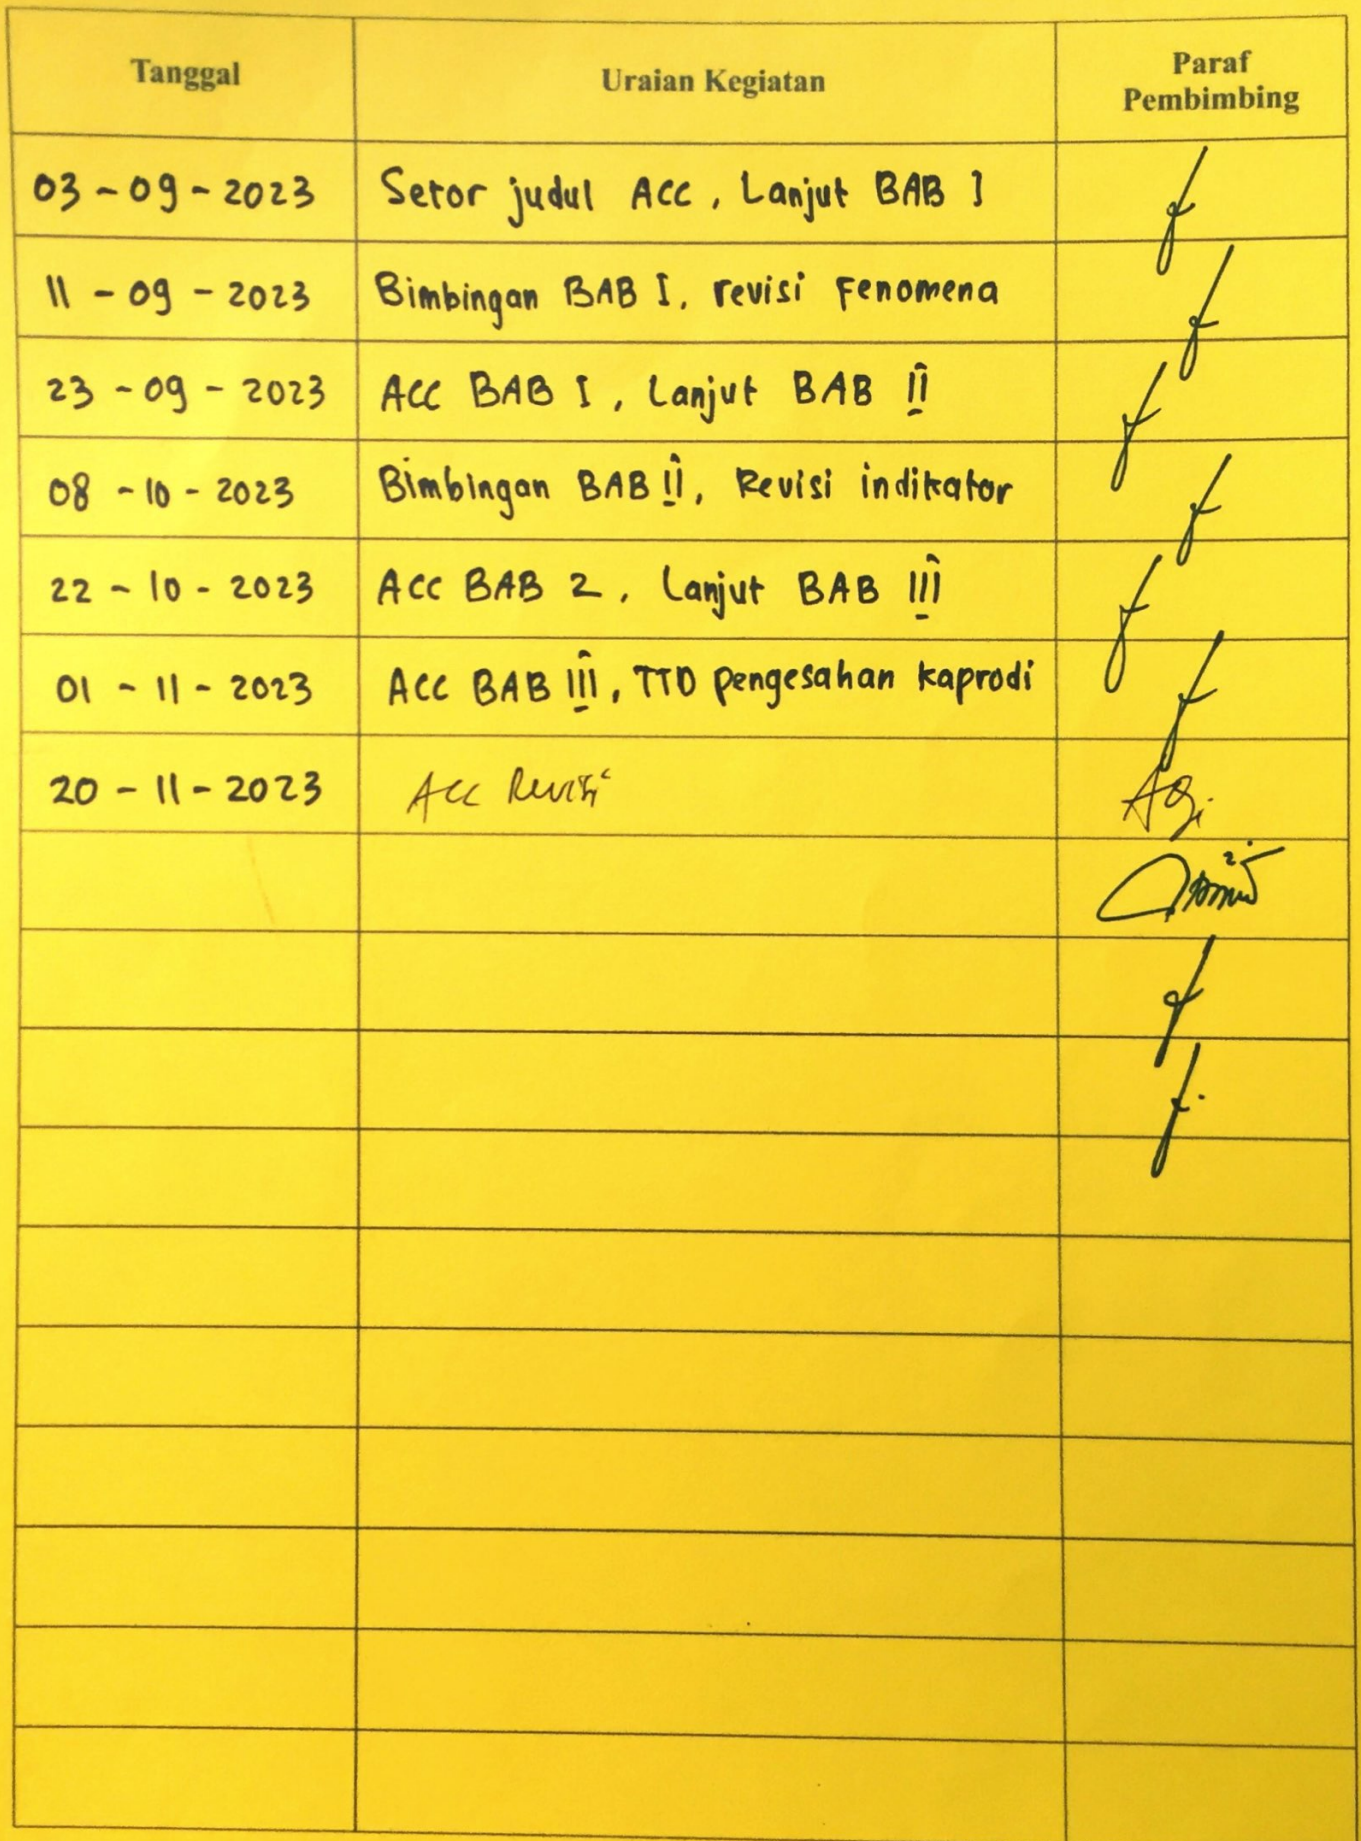 Tanggal Uraian Kegiatan Paraf
Pembimbing
03 - 09 - 2023 Setor judul ACC, Lanjut BAB I
11 - 09 - 2023 Bimbingan BAB I, revisi Fenomena
23 - 09 - 2023 ACC BAB I, Lanjut BAB II
08 - 10 - 2023 Bimbingan BAB II, Revisi indikator
22 - 10 - 2023 ACC BAB 2, Lanjut BAB III
01 - 11 - 2023 ACC BAB III, TTD pengesahan kaprodi
20 - 11 - 2023 Acc Revisi